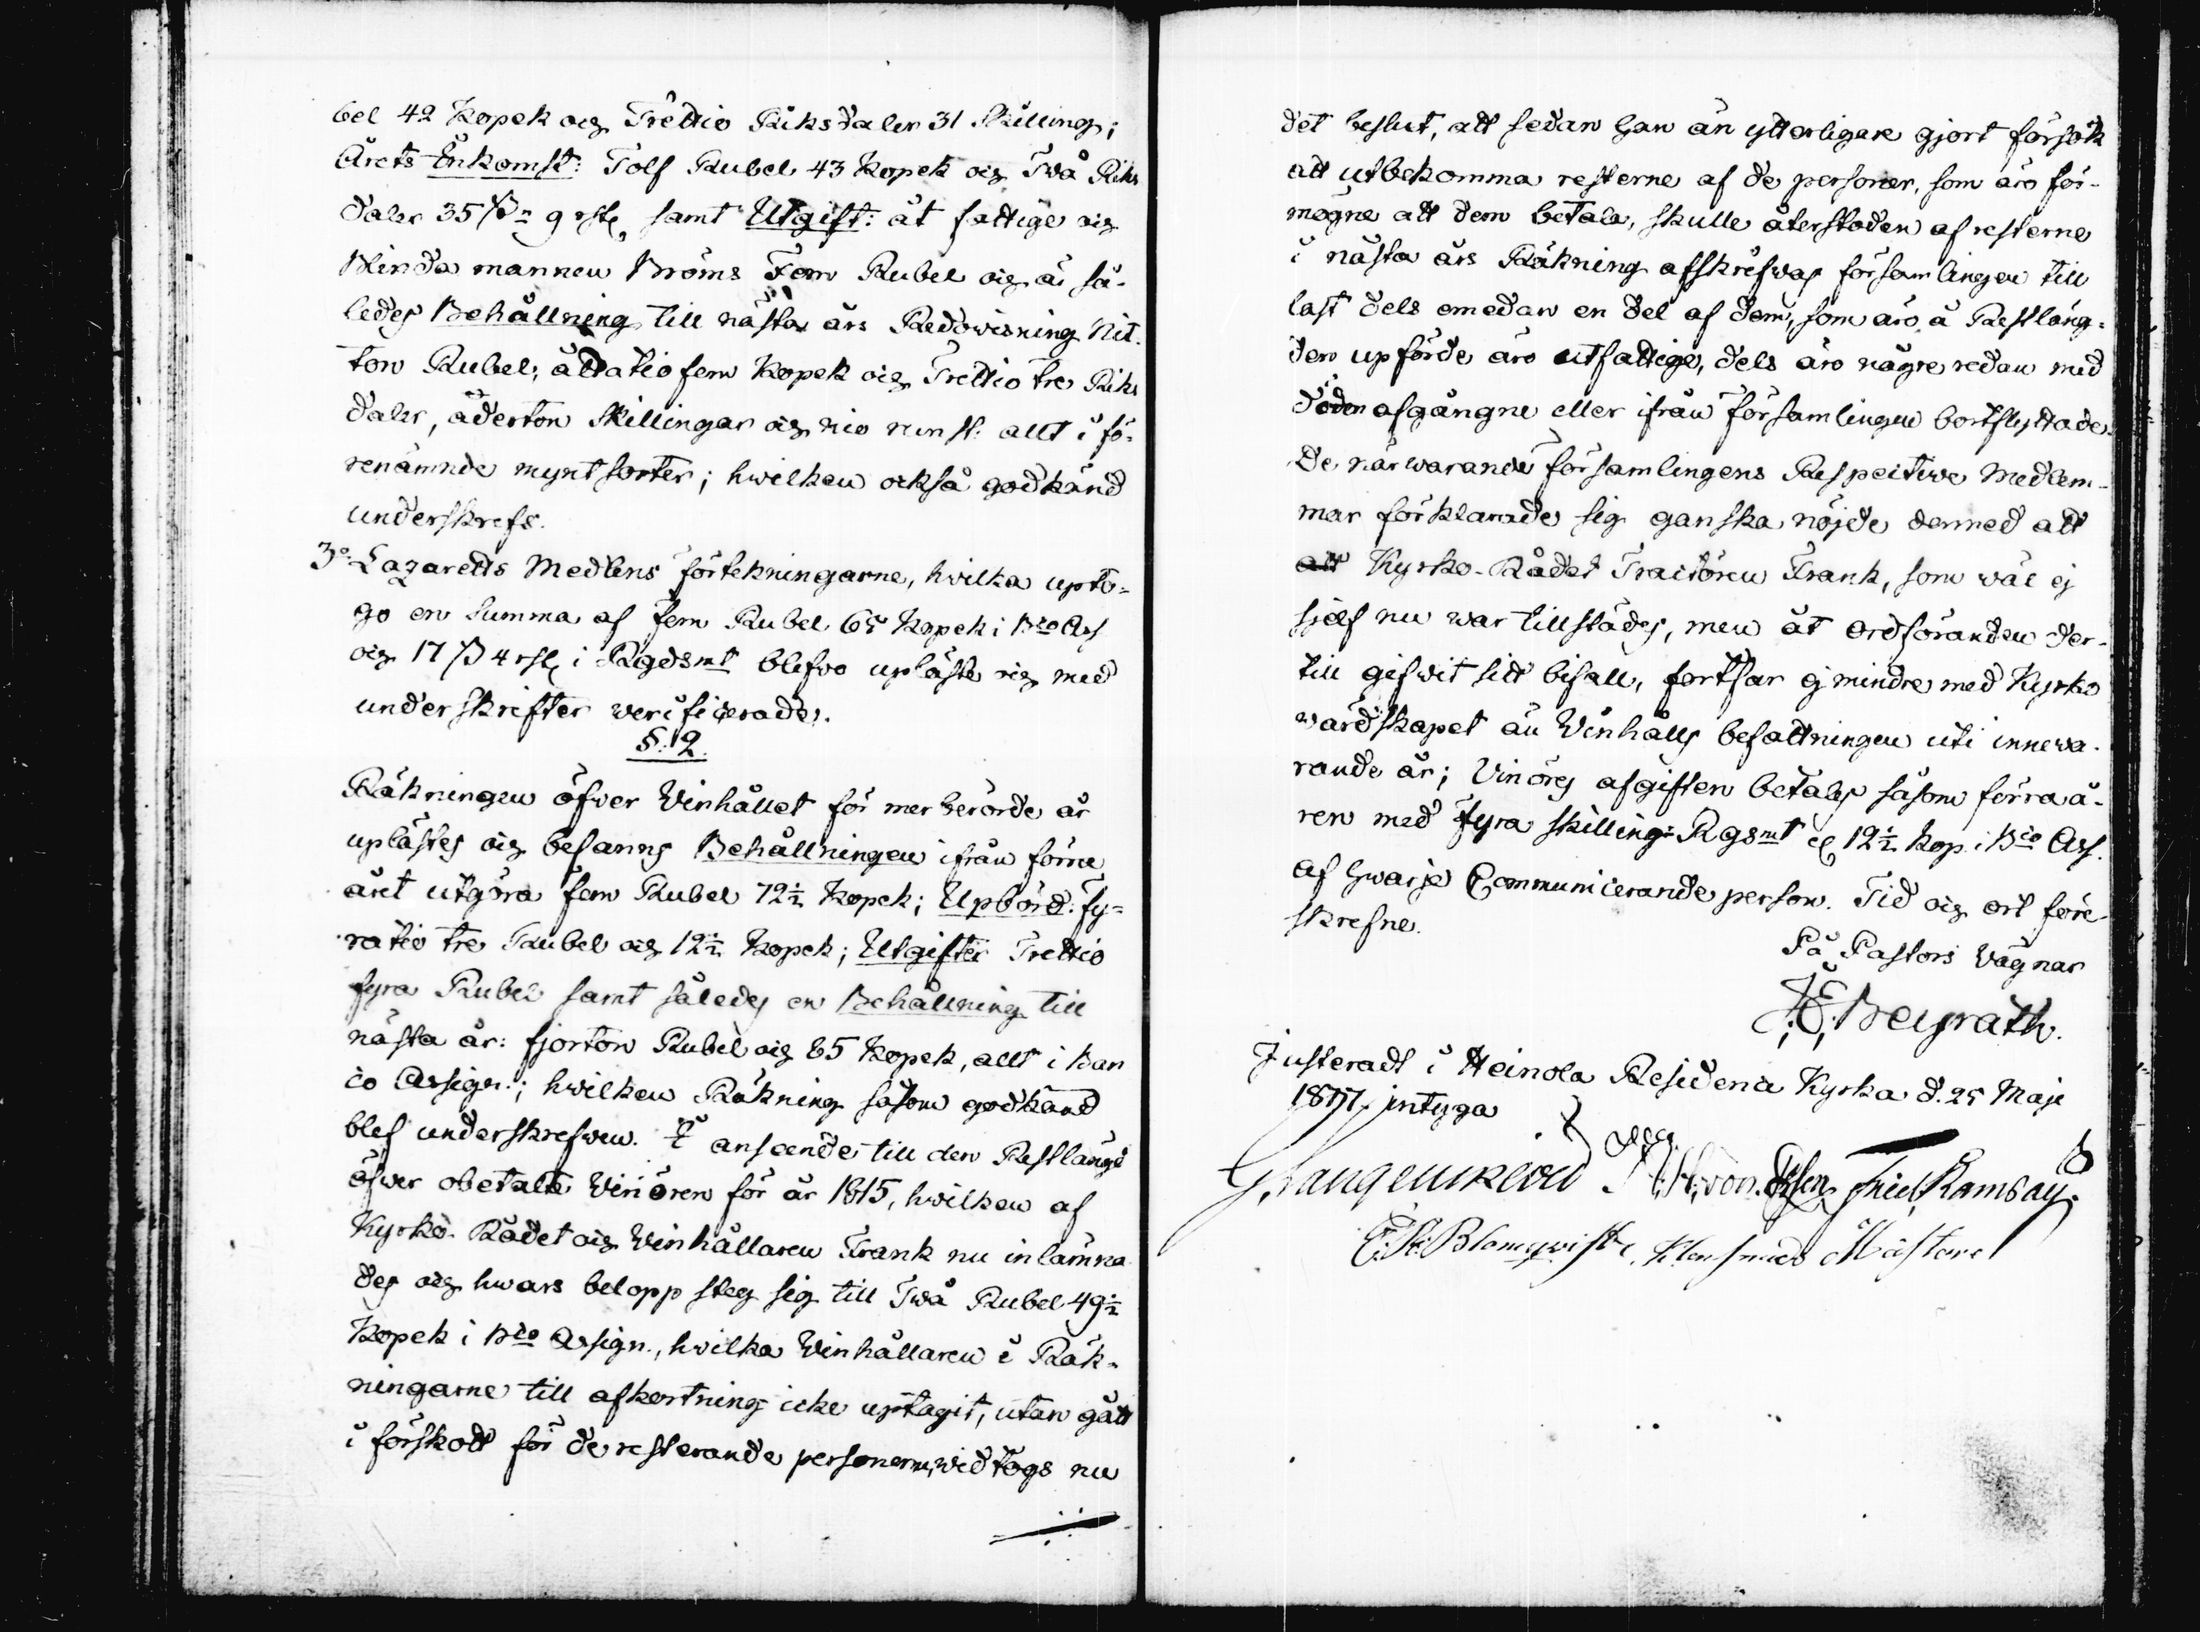 bel 42 Kopek och Trettio Riksdaler 31 Skilling;
Årets Inkomst: Tolf Rubel 43 Kopek och Två Riks
daler 35 ß 9 rst, samt Utgift: åt fattige och
Blinda mannen Bröms Fem Rubel och är så-
ledes Behållning till nästa års Redowisning Nit-
ton Rubel, åttatiofem Kopek och Trettio tre Riks
daler, åderton Skillingar och nio runst: allt i fö-
renämnde myntsorter; hwilken också godkänd
underskrefs.
3o Lazaretts Medlens förtekningarne, hvilka upto-
go en Summa af fem Rubel 65 Kopek i Bco Ass
och 17 ß 4 rst i Rgdsmt blefvo upläste och med
underskrifter verificerade.
§. 2.
Räkningen öfver Vinhållet för merberörde år
uplästes och befanns Behållningen ifrån förra
året utgöra fem Rubel 72½ Kopek; Upbörd: fy-
ratio tre Rubel och 12½ Kopek; Utgifter Trettio
fyra Rubel samt således en Behållning till
nästa år: fjorton Rubel och 85 Kopek, allt i Ban
co Assign.; hwilken Räkning såsom godkänd
blef underskrefwen. I anseende till den Restlängd
öfwer obetalte Vinören för år 1815, hwilken af
Kyrko-Rådet och Vinhållaren Frank nu inlämna
des och hwars belopp steg sig till Twå Rubel 49½
Kopek i Bco Assign., hwilka Vinhållaren i Räk-
ningarne till afkortning icke uptagit, utan gått
i förskott för de resterande personerne, widtogs nu
det beslut, att sedan han än ytterligare gjort försök
att utbekomma resterne af de personer, som äro för-
mögne att dem betala, skulle återstoden af resterne
i nästa års Räkning afskrifwas församlingen till
last dels emedan en del af dem, som äro å Restläng-
den upförde äro utfattige, dels äro någre redan med
döden afgångne eller ifrån församlingen bortflyttade.
De närwarande församlingens Respective Medlem-
mar förklarade sig ganska nöjde dermed att
att Kyrko-Rådet Tractören Frank, som wäl ej
sjelf nu war tillstädes, men åt Ordföranden der-
till gifwit sitt bifall, fortfar ej mindre med Kyrko
wärdskapet än Vinhålls befattningen uti innewa-
rande år; Vinöres afgiften betales såsom förra å-
ren med fyra skilling Rgsmt el 12½ kop. i Bco Ass.
af hwarje Communicerande person. Tid och ort före-
skrefne.
På Pastors Vägnar
J.E. Beyrath.
Justeradt i Heinola Residence Kyrka d. 25 Maje
1817, intyga
G. Langenskiöld von Essen Fried. Ramsay.
C. H. Blomqvist Klensmeds Mästare